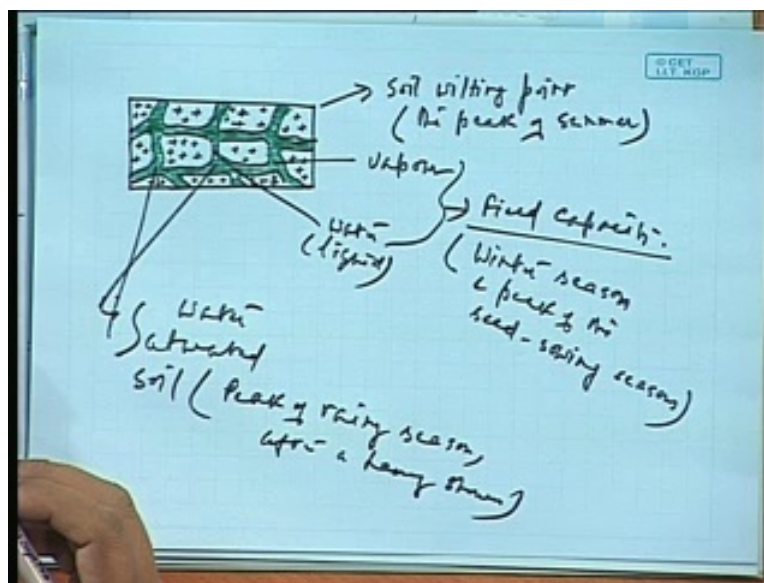 © CET
I.I.T. KGP
Soil wilting point
(The peak of summer)
vapour
water
(liquid)
Field capacity.
(Winter season
& peak of the
seed-sowing season)
water
saturated
soil (Peak of rainy season,
after a heavy shower)